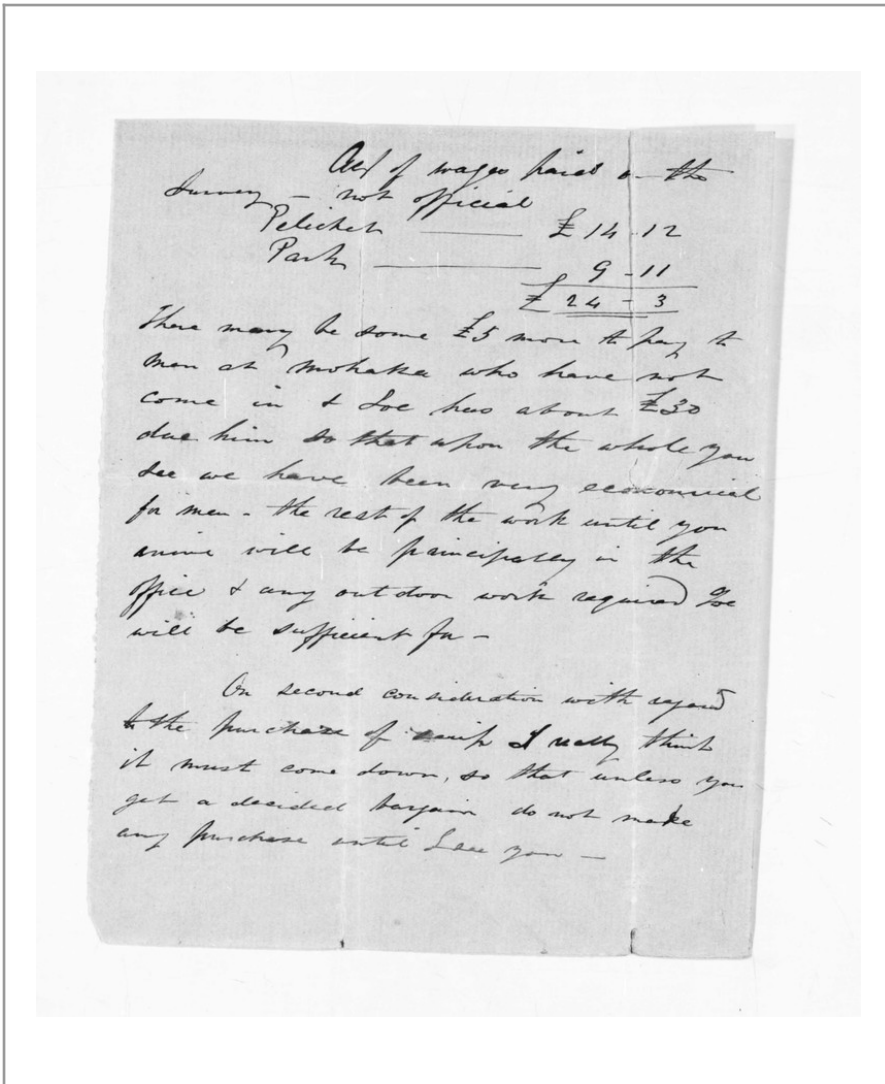 Act of wages paid on the
Survey – not official
Pelichet — £14-12
Park — 9-11
£ 24-3
There many be some £5 more to pay to
men at Mohaka who have not
come in & Joe has about £30
due him so that upon the whole you
see we have been very economical
for men - the rest of the work until you
arrive will be principally in the
office & any outdoor work required Joe
will be sufficient for –
On second consideration with regard
to the purchase of scrip I really think
it must come down, so that unless you
get a decided bargain do not make
any purchase until I see you –